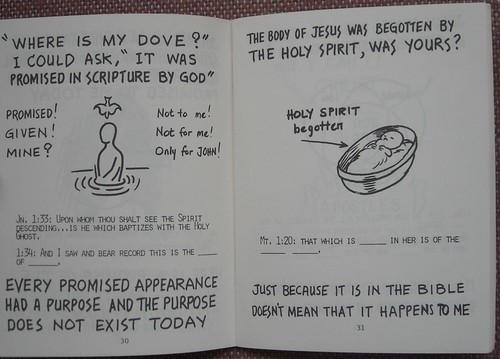 "WHERE IS MY DOVE?"
I COULD ASK, "IT WAS
PROMISED IN SCRIPTURE BY GOD"
PROMISED!
GIVEN!
MINE?
Not to me!
Not for me!
Only for JOHN!
JN. 1:33: UPON WHOM THOU SHALT SEE THE SPIRIT
DESCENDING...IS HE WHICH BAPTIZES WITH THE HOLY
GHOST.
1:34: AND I SAW AND BEAR RECORD THIS IS THE ____
OF ______.
EVERY PROMISED APPEARANCE
HAD A PURPOSE AND THE PURPOSE
DOES NOT EXIST TODAY
30
THE BODY OF JESUS WAS BEGOTTEN BY
THE HOLY SPIRIT, WAS YOURS?
HOLY SPIRIT
begotten
MT. 1:20: THAT WHICH IS _____ IN HER IS OF THE
_____ _____.
JUST BECAUSE IT IS IN THE BIBLE
DOESN'T MEAN THAT IT HAPPENS TO ME
31